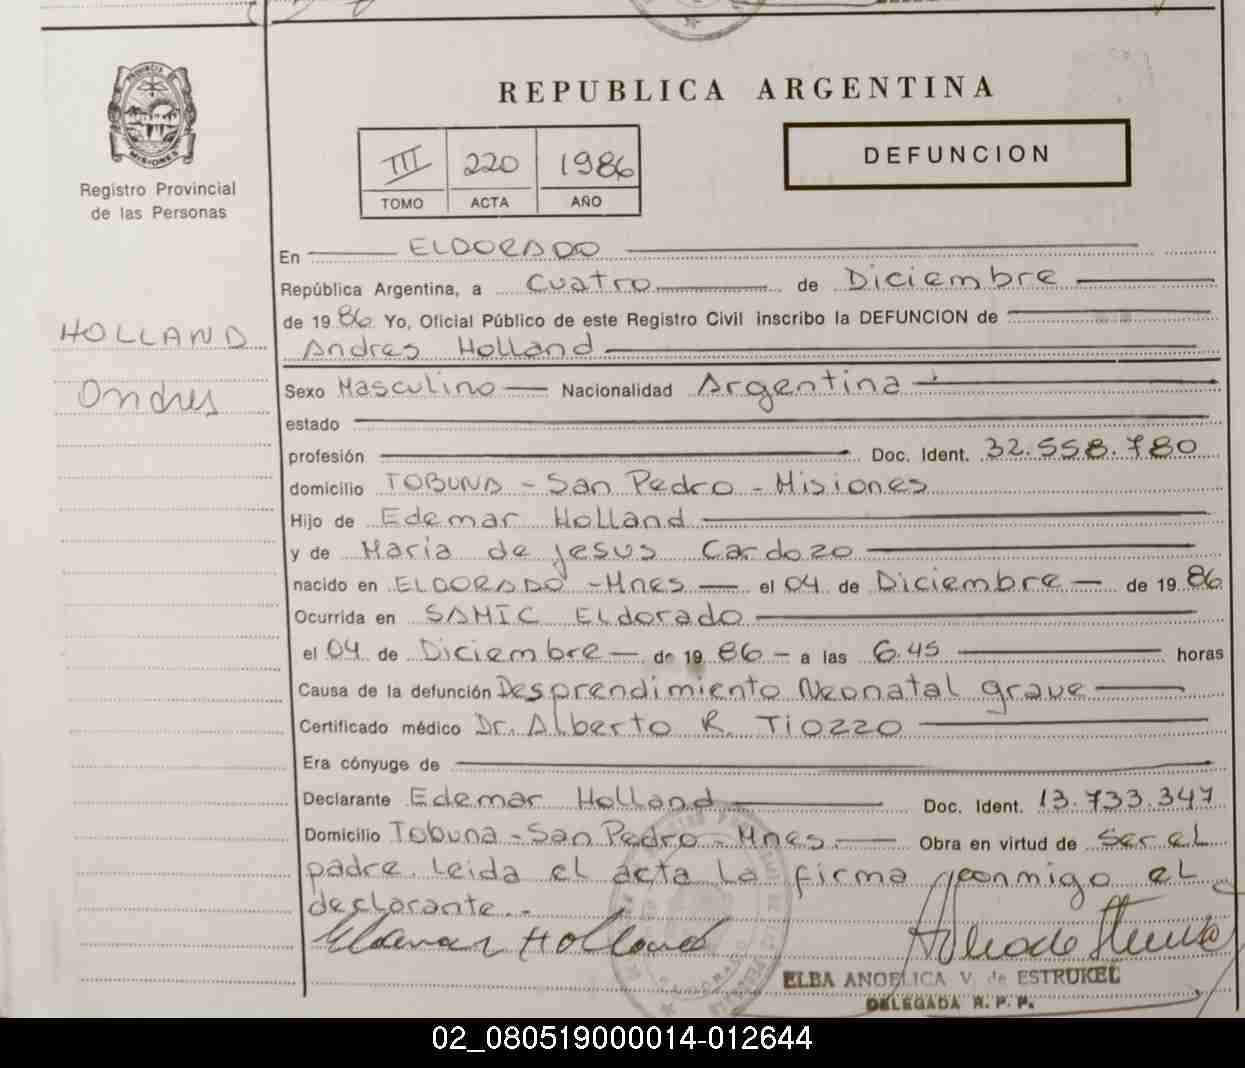 PROVINCIA DE
MISIONES
Registro Provincial
de las Personas
HOLLAND
Andres
REPUBLICA ARGENTINA
III 220 1986
TOMO ACTA AÑO
DEFUNCION
En ELDORADO
República Argentina, a Cuatro de Diciembre
de 1986 Yo, Oficial Público de este Registro Civil inscribo la DEFUNCION de
Andres Holland
Sexo Masculino Nacionalidad Argentina
estado
profesión Doc. Ident. 32.558.780
domicilio TOBUNA - San Pedro - Misiones
Hijo de Edemar Holland
y de Maria de Jesus Cardozo
nacido en ELDORADO - Mnes el 04 de Diciembre de 1986
Ocurrida en SAMIC Eldorado
el 04 de Diciembre de 1986 a las 6.45 horas
Causa de la defunción Desprendimiento Neonatal grave
Certificado médico Dr. Alberto R. Tiozzo
Era cónyuge de
Declarante Edemar Holland Doc. Ident. 13.733.347
Domicilio Tobuna - San Pedro - Mnes Obra en virtud de ser el
padre. Leida el acta la firma conmigo el
declarante.-
Edemar Holland
ELBA ANGELICA V. de ESTRUKEL
DELEGADA R. P. P.
02_080519000014-012644